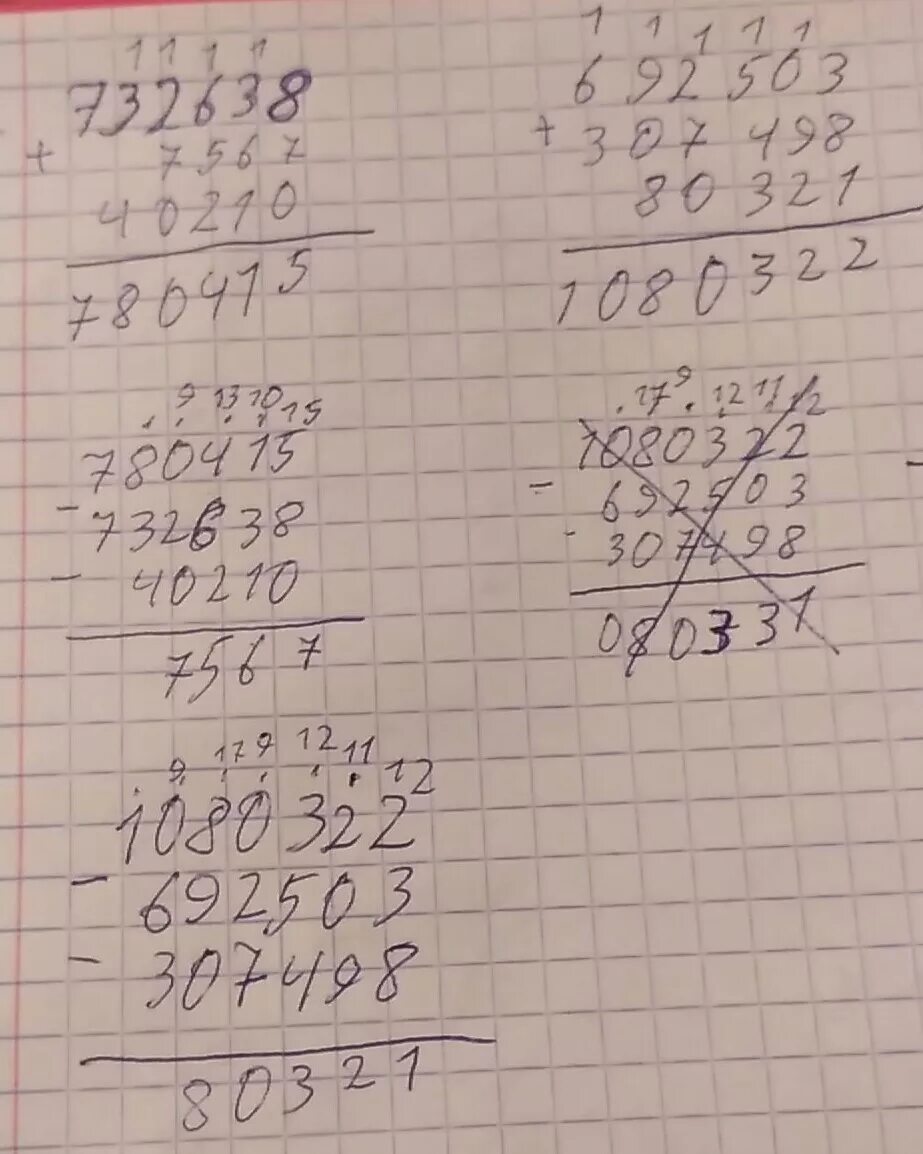 1 1 1 1
732638
+ 7567
40210
780415
1 1 1 1 1
692503
+ 307498
80321
1080322
9 13 10 15
780415
- 732638
- 40210
7567
17 9 12 11 12
1080322
- 692503
- 307498
080331
9 17 9 12 11 12
1080322
- 692503
- 307498
80321